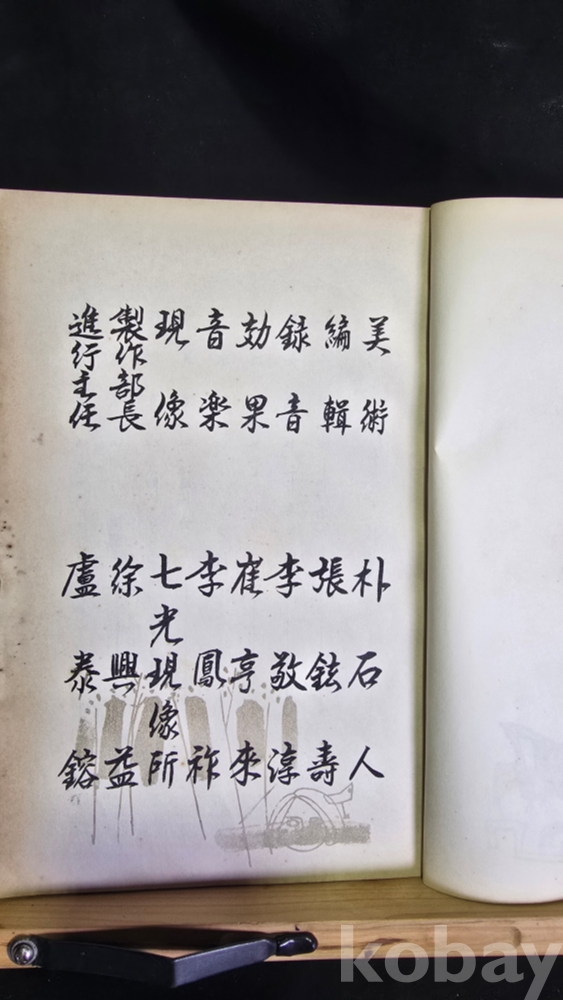 美術 朴石人
編輯 張鉉壽
録音 李敬淳
効果 崔亨來
音楽 李鳳祚
現像 七光現像所
製作部長 徐興益
進行主任 盧泰鎔
kobay